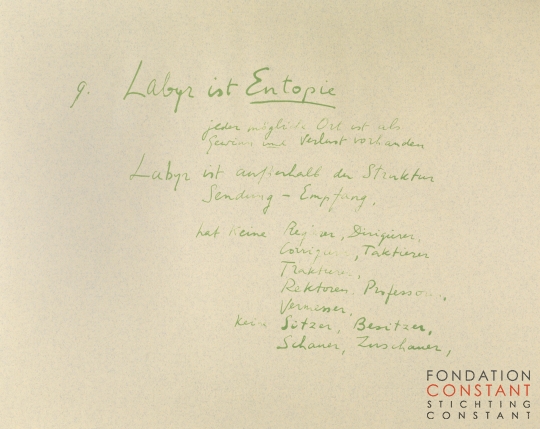 9. Labyr ist Entopie
jeder mögliche Ort ist als
Gewinn und Verlust vorhanden
Labyr ist außerhalb der Struktur
Sendung – Empfang,
hat keine Dirigierer,
Taktierer
Traktierer,
Rektoren, Professoren,
Vermesser,
keine Sitzer, Besitzer,
Schauer, Zuschauer,
FONDATION
CONSTANT
STICHTING
CONSTANT